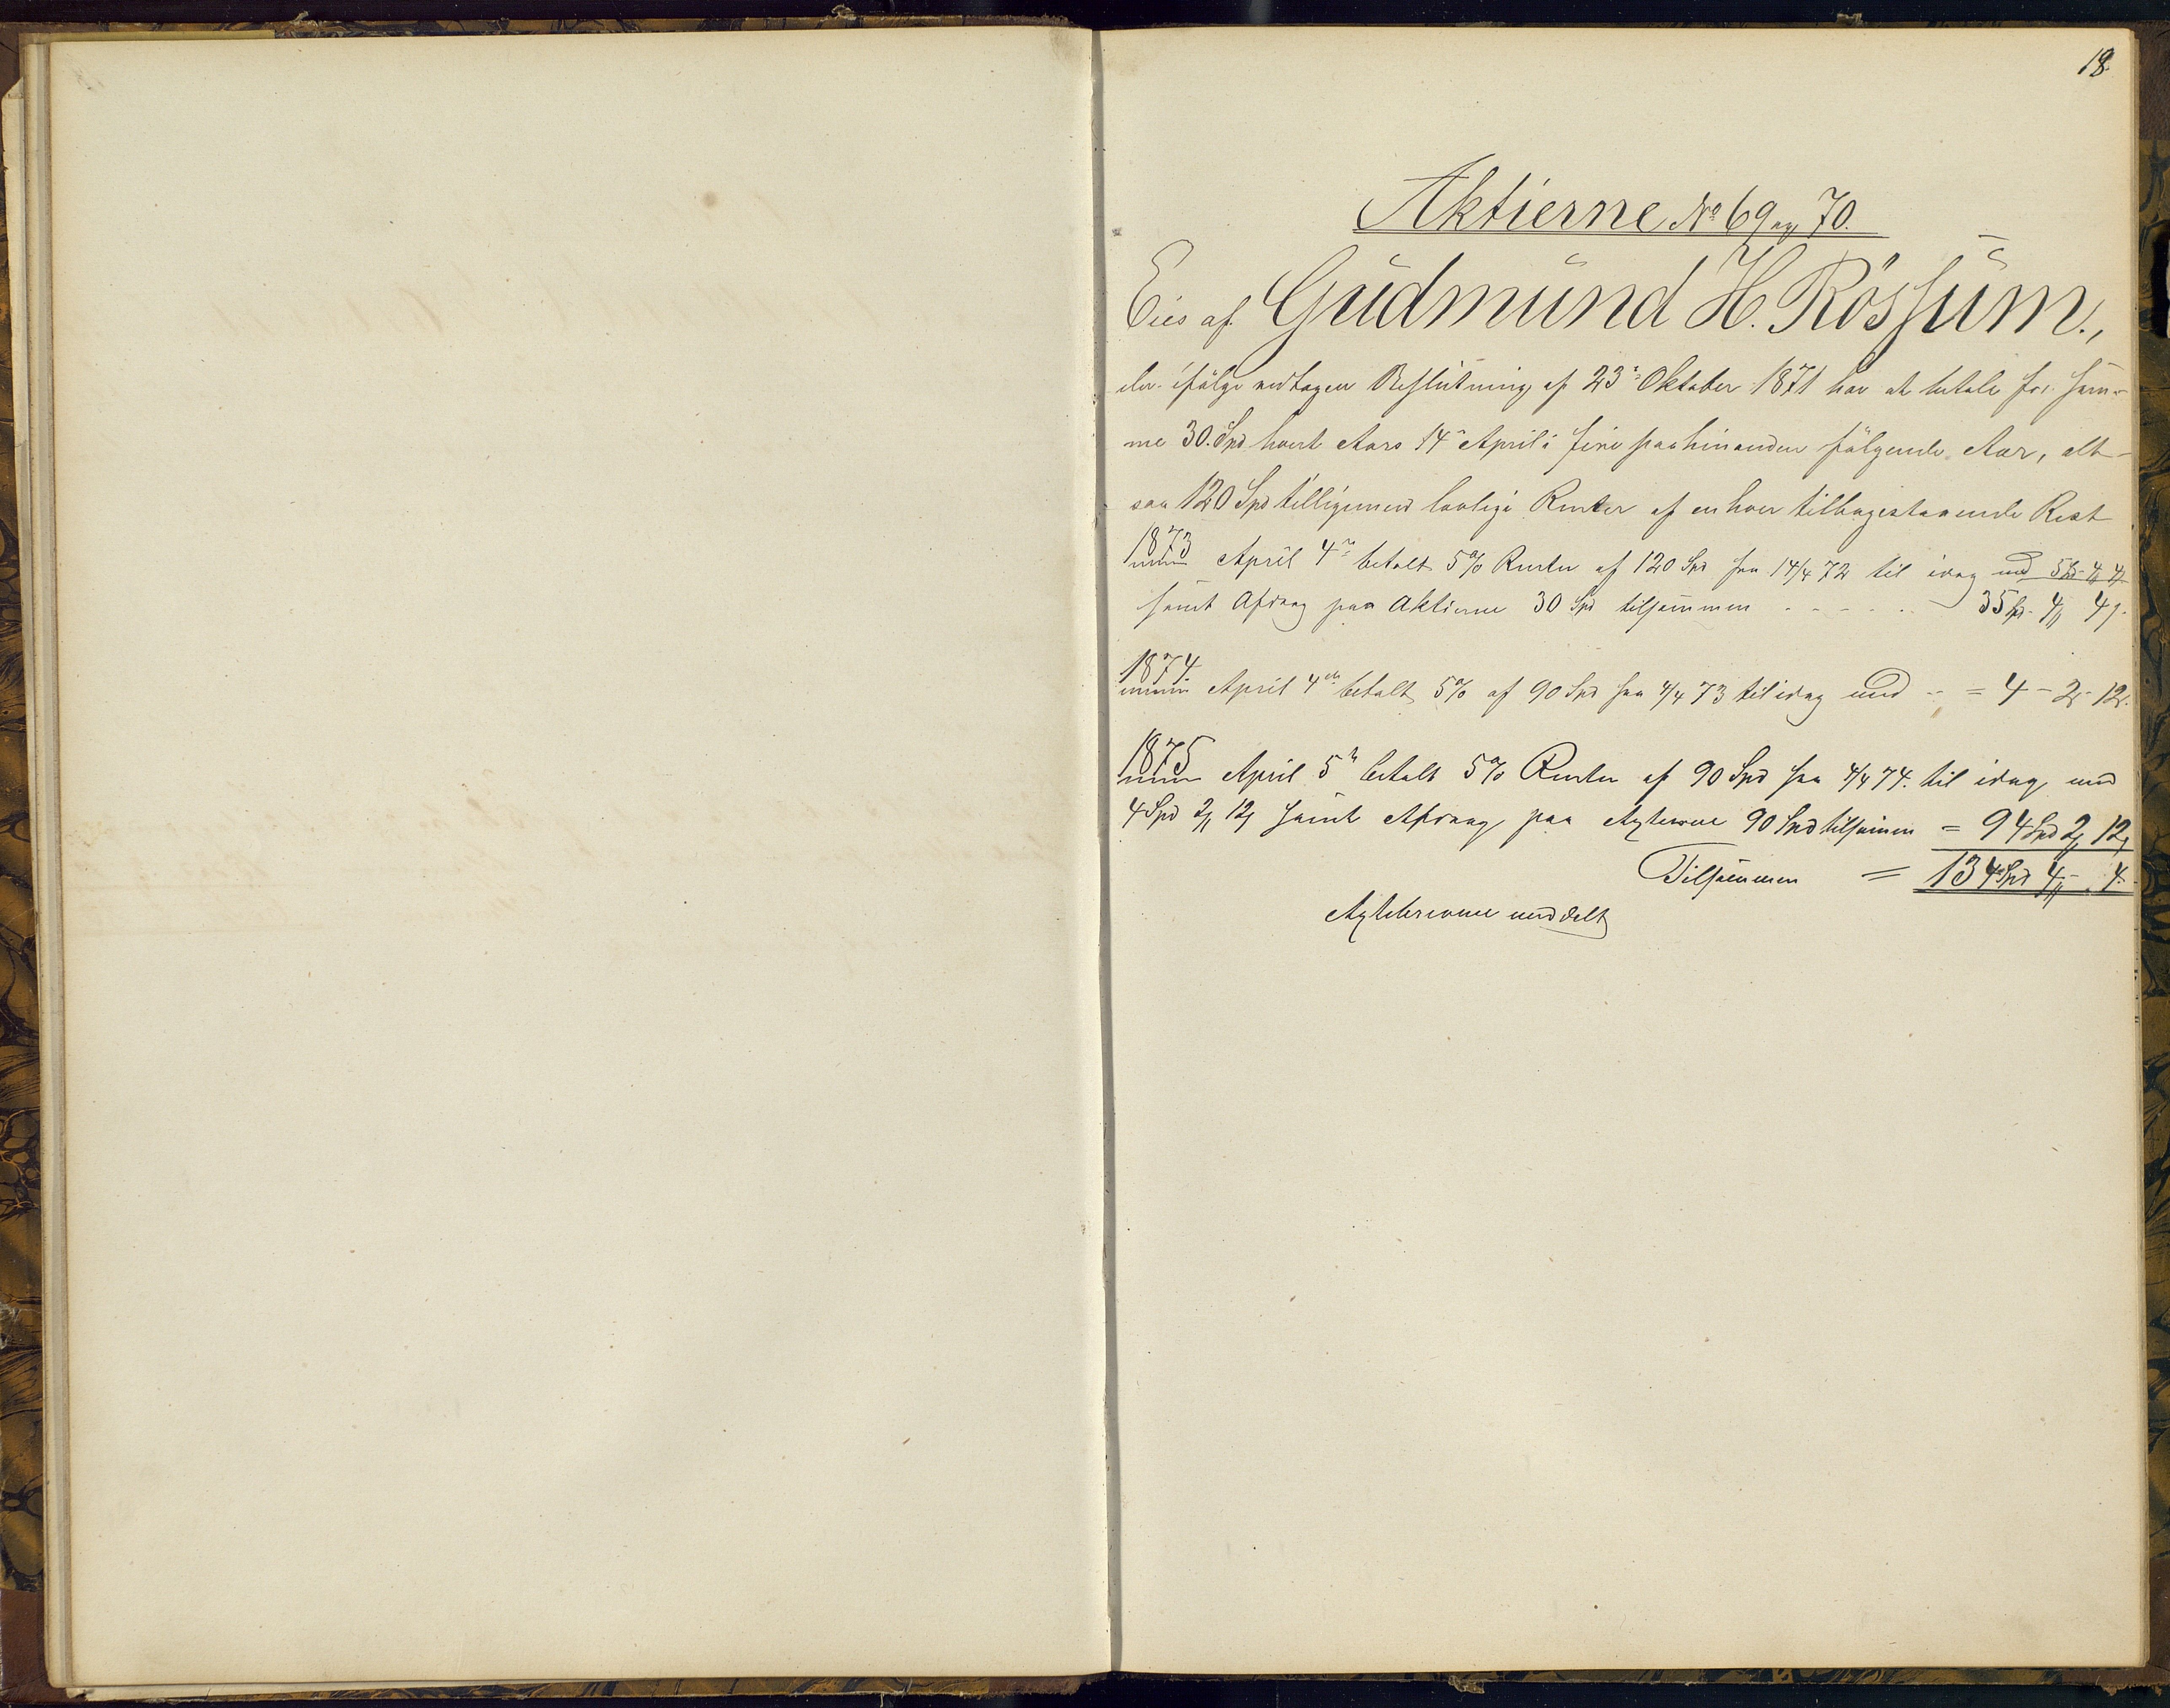 18.
Aktierne No 69 og 70.
Eies af Gudmund H. Rössum.,
der ifölge vedtagen Beslutning af 23de Oktober 1871 har at betale for sam-
me 30. Spd hvert Aars 14de April i fire paahinanden fölgende Aar, alt-
saa 120 Spd tilligemed lovlige Renter af enhver tilbagestaaende Rest
1873 April 4de betalt 5% Renter af 120 Spd fra 14/4 72 til idag med 5 Spd 4 4
samt Afdrag paa Aktierne 30 Spd tilsammen - - - - - 35 Spd 4 4
1874. April 4de betalt 5% af 90 Spd fra 4/4 73 til idag med - = 4 - 2 - 12
1875 April 5te betalt 5% Renter af 90 Spd fra 4/4 74. til idag med
4 Spd 2 12 samt Afdrag paa 90 Spd tilsammen = 94 Spd 2 12
Tilsammen = 134 Spd 4 - 4.
meddelt